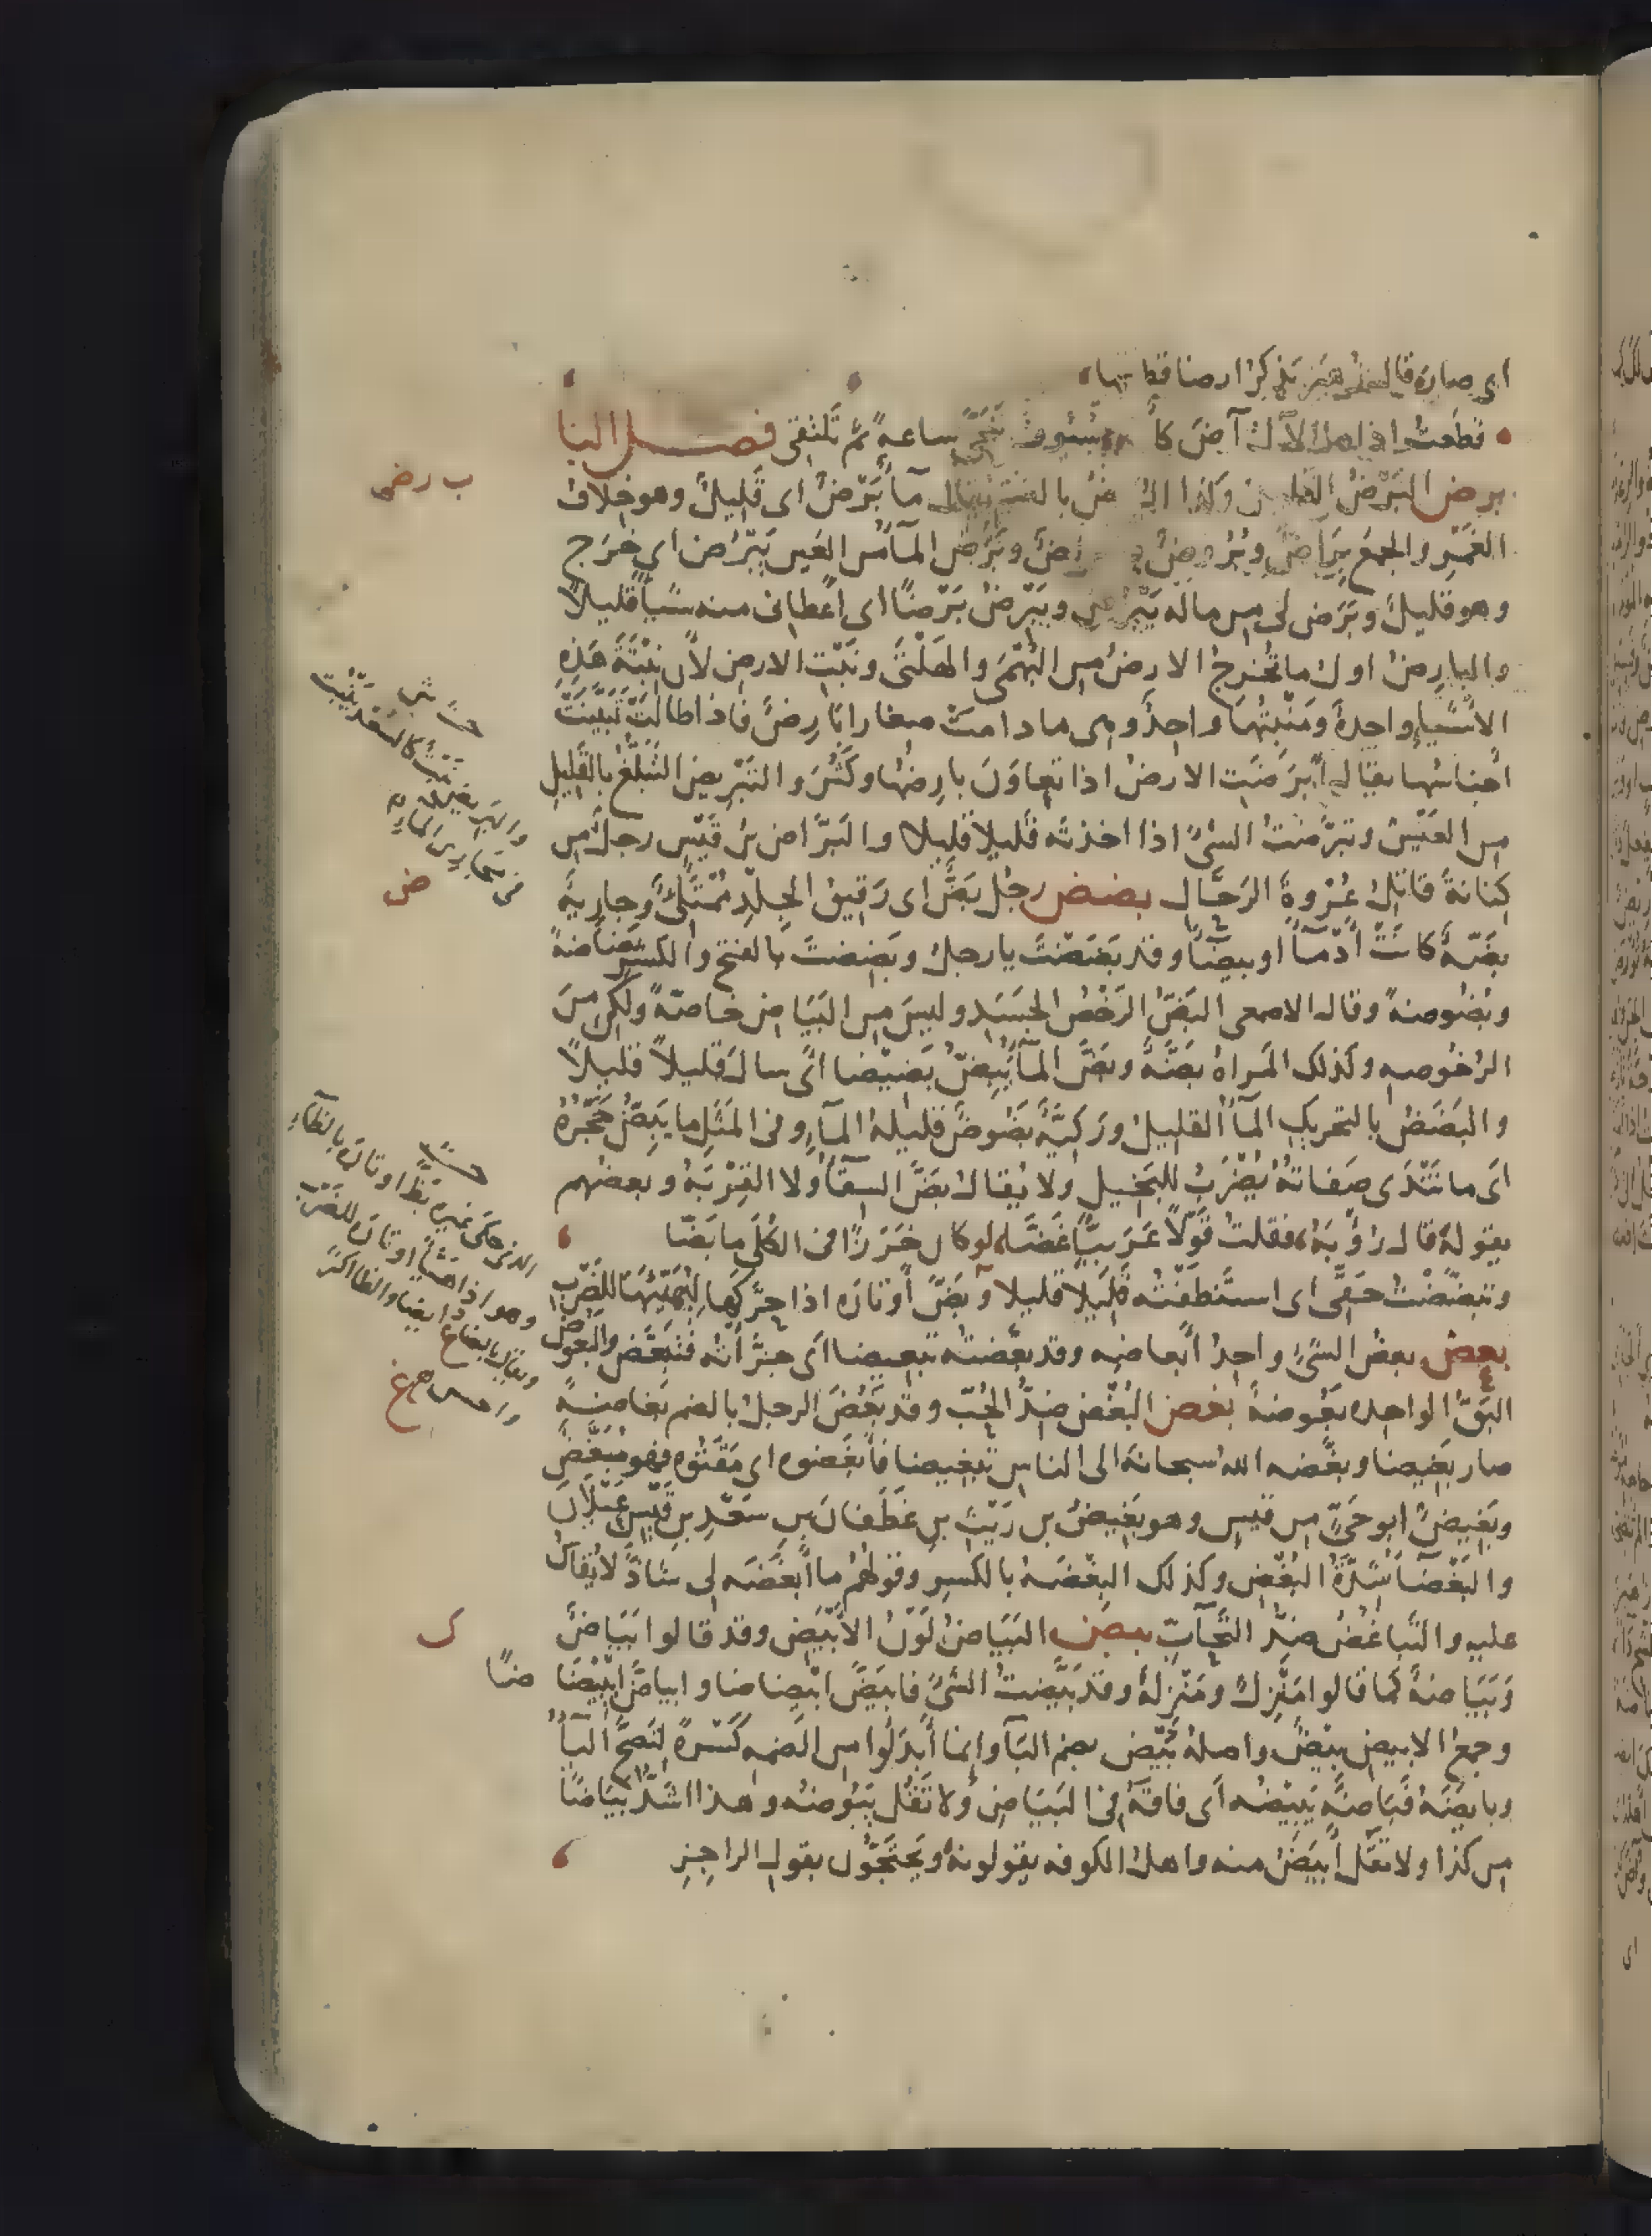 اى صار قال زهير يذكر ارضا قطعها
قطعت اذا ما الآل آض كأنه سيوف تنحّى ساعةً ثم تلتقى فصل البا
برض البَرْضُ القليل وكذا البُراضُ بالضم يقال مآ بَرْضٌ اى قليلٌ وهو خلاف
الغَمْرِ والجمع بِرَاضٌ وبُرُوضٌ وبَرَضَ المآ من العين يَبْرُض اى خرَج
وهو قليلٌ وبَرَض لى من ماله يَبْرُض ويَبْرِضُ بَرْضًا اى اعطانى منه شيأ قليلاً
والبارِضُ اول ما تُخرِجُ الارضُ من البُهْمَى والهَلْتَى ونَبْتِ الارض لأن نِبْتَةَ هَذِهِ
الاشيآءِ واحدةٌ ومَنْبِتُها واحِدٌ وهى ما دامت صغارا بَارِضٌ فاذا طالَتْ تَبَيَّنَتْ
أجناسُها يقال ابْرَضَتِ الارضُ اذا تعاوَنَ بارِضُها وكَثُرَ والتبَرُّضُ التَّبَلُّغُ بالقَليلِ
من العَيْش وتَبَرَّضْتُ الشئَ اذا اخذته قليلا قليلا والبَرَّاض بن قَيْسٍ رجلٌ من
كِنانةَ قاتلُ عُرْوةَ الرَّحَّال بضض رجُل بَضٌّ اى رَقيقُ الجِلْدِ مُمْتَلِئٌ وجارِيةٌ
بضَّةٌ كانَتْ أَدْمَآ او بيضآ وقد بَضَضْتَ يا رجلُ وبَضِضتَ بالفتح والكسر بَضَاضَةً
وبُضُوضةً وقال الاصمعى البَضُّ الرَّخْصُ الجسَدِ وليسَ من البَيَاض خاصّةً ولكن منَ
الرُّخُوصه وكذلك المَراةُ بَضَّةٌ وبَضَّ المآُ يَبِضُّ بَضِيضا اى سال قليلاً قليلاً
والبَضَضُ بالتحريكِ المآُ القليلُ ورَكِيَّةٌ بَضُوضٌ قليلةُ المآءِ وفى المَثَلِ ما يَبِضُّ حَجَرُهُ
اى ما تَنْدَى صَفَاتُهُ يُضْرَبُ للبَخِيلِ ولا يُقالُ بَضَّ السِقَآُ ولا القِرْبَةُ وبعضهم
يقولهُ قال رُؤْبَةُ فقلتُ قولاً عَرَبيّا غَضَّا لو كان خَرَزًا فى الكُلَى ما بَضّا
وتبضّضْتُ حَقّى اى استَنْظَفْتُه قليلا قليلا وبَضَّ أوتارَه اذا حرَّكَها لِيُهَيِّئَها للضَّرْبِ
بعض بعضُ الشئِ واحدُ أبعاضِه وقد بعَّضتُهُ تبعيضا اى جزَّأتُه فتَبَعَّض والبعوض
البَقّ الواحده بَعُوضةٌ بغض البُغْض ضِدُّ الحُبّ وقد بَغُضَ الرجلُ بالضم بَغاضةً
صار بَغيضا وبغَّضه اللهُ سبحانه الى الناسِ تبغيضا فأبغَضوه اى مَقَتُوه فهو مُبَغَّضٌ
وبَغِيضٌ ابو حَىٍّ من قيس وهو بَغِيضُ بن رَيْثِ بن غَطَفَانَ بن سَعْدِ بن قَيْسِ عَيْلَانَ
والبَغْضآُ شِدّةُ البُغْضِ وكذلك البِغْضَهُ بالكسرِ وقولُهُم ما أبغَضَه لى شاذٌّ لا يُقالُ
عليه والتَّباغُضُ ضِدُّ التَّحآبّ بيض البَيَاضُ لَوْنُ الأَبْيَضِ وقد قالوا بَيَاضٌ
وبَيَاضةٌ كما قالوا مَنْزِلٌ ومَنْزِلةٌ وقد بَيَّضتُ الشئَ فابيَضَّ ابْيِضاضا وابياضَّ ابْيِيْضَا ضًا
وجمعُ الابيضِ بِيضٌ واصلهُ بُيْض بضم البآ وإنما أَبدَلُوا من الضمه كَسْرةً لتَصِحَّ اليآُ
وبايَضَهُ فبَاضَهُ يَبِيضُه اى فاقَهُ فى البَيَاضِ ولا تَقُل يَبُوضُه وهذا اشدّ بَيَاضًا
من كذا ولا تقل أَبيَضُ منه واهلُ الكوفه يقولونهُ ويَحتَجُّون بقولِ الراجِزِ
ب رضى
ض
ى